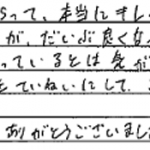 らって、本当にきし
が、だいぶ良くな
っているとは気が
をていねいにして、
ありがとうございまし